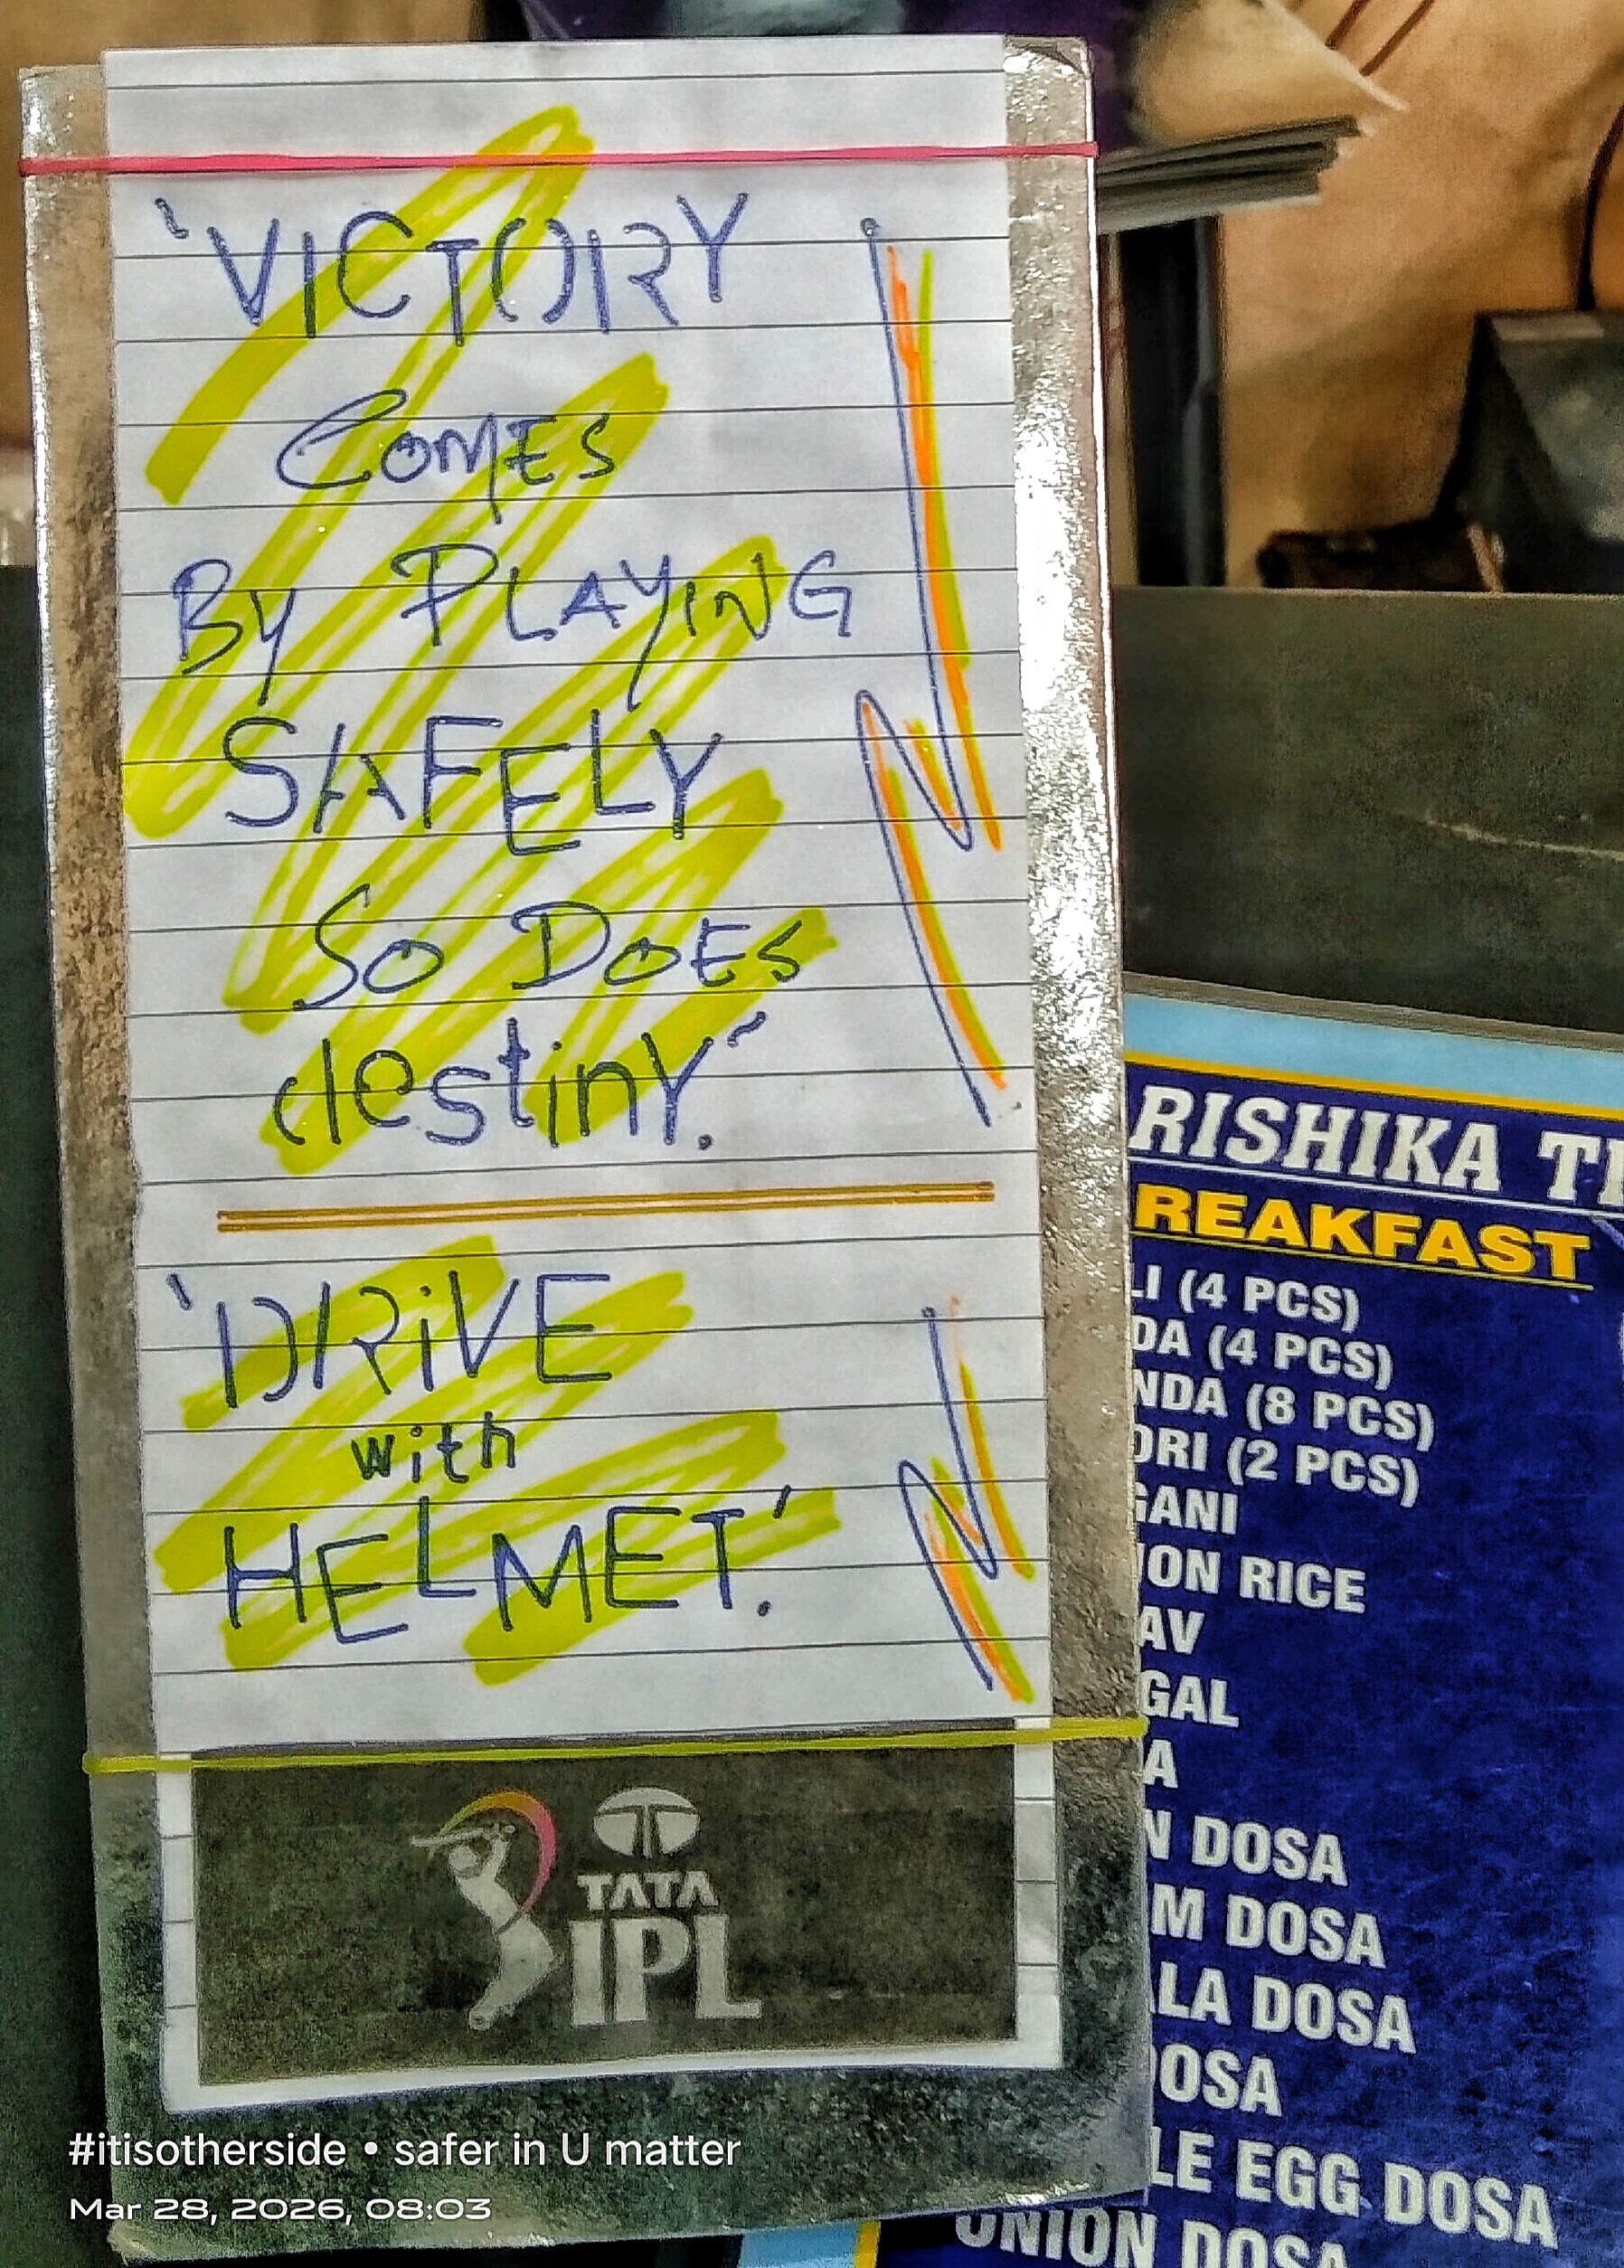 'VICTORY
COMES
BY PLAYING
SAFELY
SO DOES
destiny.'
'DRiVE
with
HELMET.'
TATA
IPL
#itisotherside • safer in U matter
Mar 28, 2026, 08:03
RISHIKA
REAKFAST
(4 PCS)
(4 PCS)
(8 PCS)
(2 PCS)
GANI
ION RICE
AV
GAL
A
N DOSA
M DOSA
LA DOSA
DOSA
LE EGG DOSA
ONION DOSA